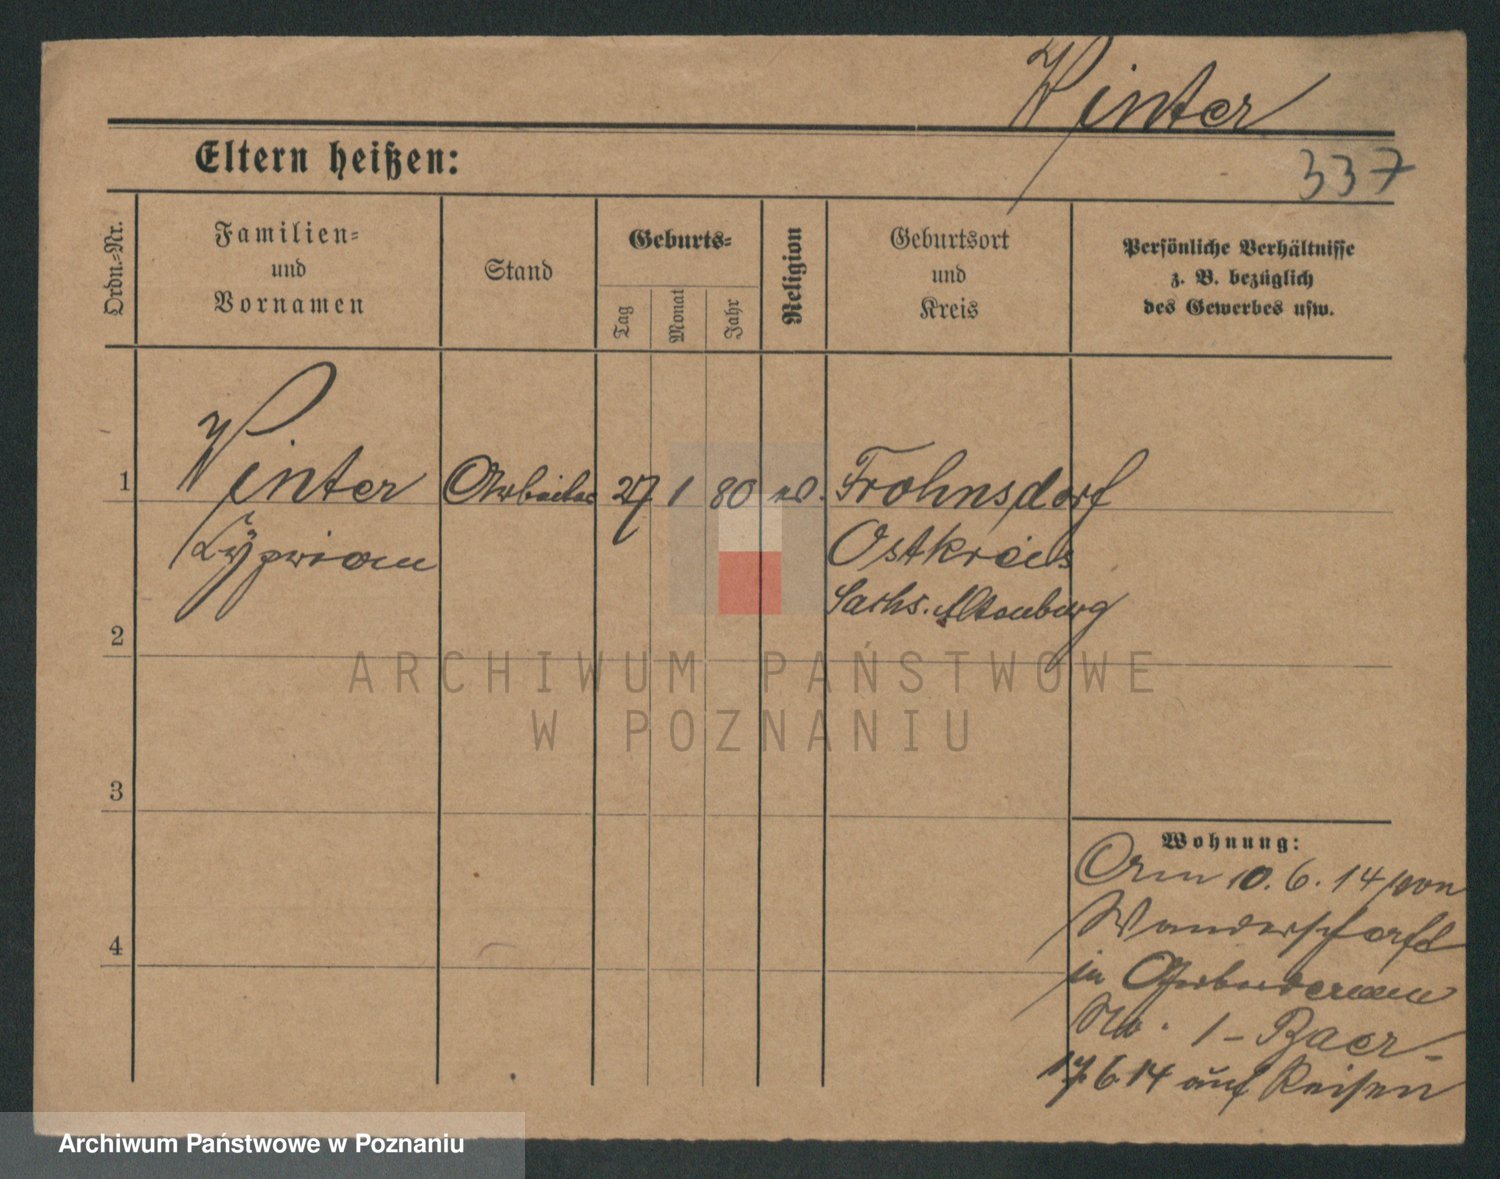 Winter
Eltern heißen:
337
Ordn.-Nr.
Familien-
und
Vornamen
Stand
Geburts-
Tag
Monat
Jahr
Religion
Geburtsort
und
Kreis
Persönliche Verhältnisse
z. B. bezüglich
des Gewerbes usw.
1
Winter
Cyprian
Arbeiter
27
1
80
Frohnsdorf
Ostkreis
Sachs. Altenburg
2
3
4
Wohnung:
Am 10.6.14 von
Wanderschaft
in
No. 1 - Baer -
17.6.14 auf Reisen
ARCHIWUM PAŃSTWOWE
W POZNANIU
Archiwum Państwowe w Poznaniu